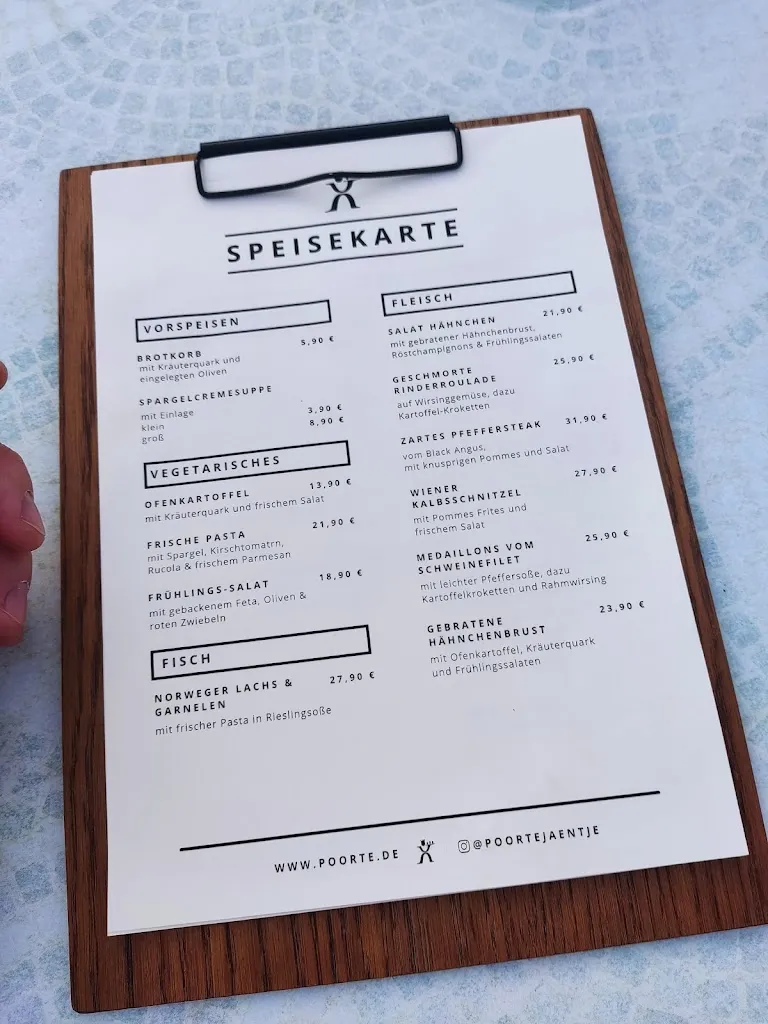 SPEISEKARTE
VORSPEISEN
BROTKORB 5,90 €
mit Kräuterquark und
eingelegten Oliven
SPARGELCREMESUPPE
mit Einlage
klein 3,90 €
groß 8,90 €
VEGETARISCHES
OFENKARTOFFEL 13,90 €
mit Kräuterquark und frischem Salat
FRISCHE PASTA 21,90 €
mit Spargel, Kirschtomatrn,
Rucola & frischem Parmesan
FRÜHLINGS-SALAT 18,90 €
mit gebackenem Feta, Oliven &
roten Zwiebeln
FISCH
NORWEGER LACHS & 27,90 €
GARNELEN
mit frischer Pasta in Rieslingsoße
FLEISCH
SALAT HÄHNCHEN 21,90 €
mit gebratener Hähnchenbrust,
Röstchampignons & Frühlingssalaten
GESCHMORTE 25,90 €
RINDERROULADE
auf Wirsinggemüse, dazu
Kartoffel-Kroketten
ZARTES PFEFFERSTEAK 31,90 €
vom Black Angus,
mit knusprigen Pommes und Salat
WIENER 27,90 €
KALBSSCHNITZEL
mit Pommes Frites und
frischem Salat
MEDAILLONS VOM 25,90 €
SCHWEINEFILET
mit leichter Pfeffersoße, dazu
Kartoffelkroketten und Rahmwirsing
GEBRATENE 23,90 €
HÄHNCHENBRUST
mit Ofenkartoffel, Kräuterquark
und Frühlingssalaten
WWW.POORTE.DE @POORTEJAENTJE